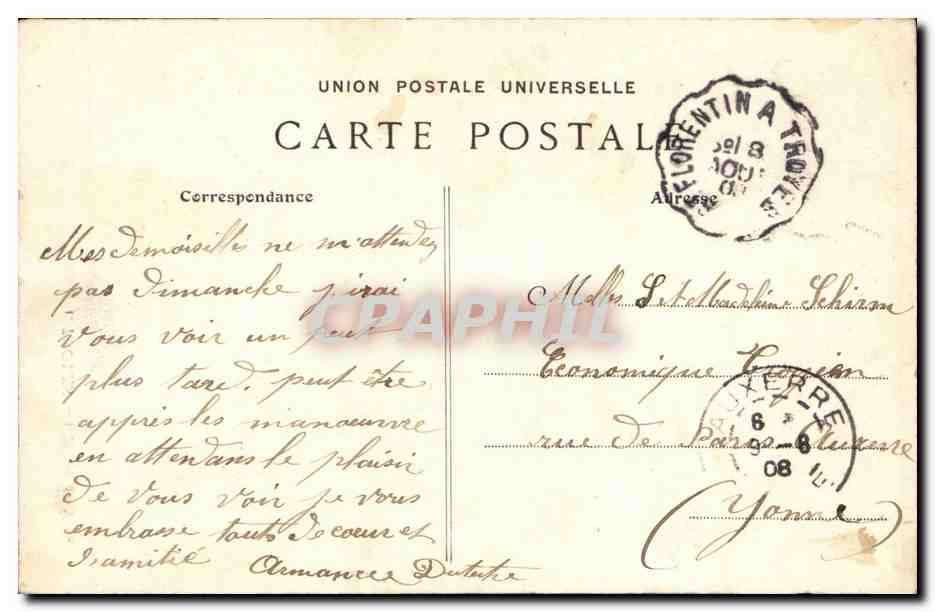 UNION POSTALE UNIVERSELLE
CARTE POSTALE
St FLORENTIN A TROYES
8
AOUT
Correspondance
Adresse
Mesdemoiselles ne m'attendez
pas dimanche j'irai
vous voir un peut
plus tard, peut être
apprès les manoeuvre
en attendans le plaisir
de vous voir je vous
embrasse touts de coeur et
d'amitié
Armance
Melles S et Madeleine Schirm
Economique
rue de Paris Auxerre
(Yonne)
AUXERRE
6
9 - 8
08
CPAPHIL